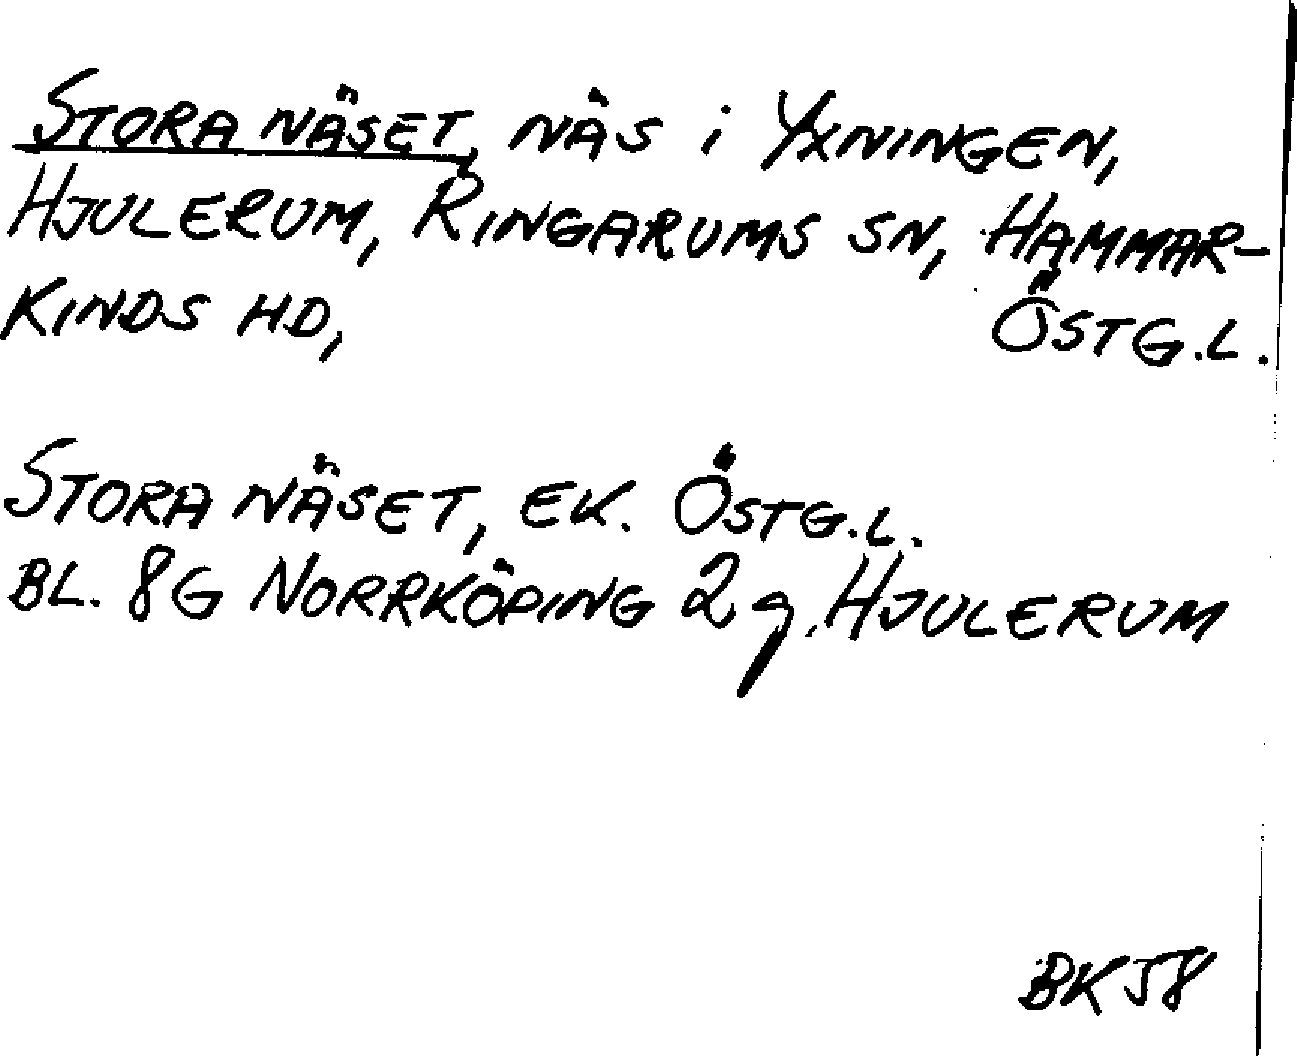 STORA NÄSET, NÄS i YXNINGEN,
HJULERUM, RINGARUMS SN, HAMMAR-
KINDS HD, ÖSTG.L.
STORA NÄSET, EK. ÖSTG.L.
BL. 8G NORRKÖPING 2g, HJULERUM
BK58